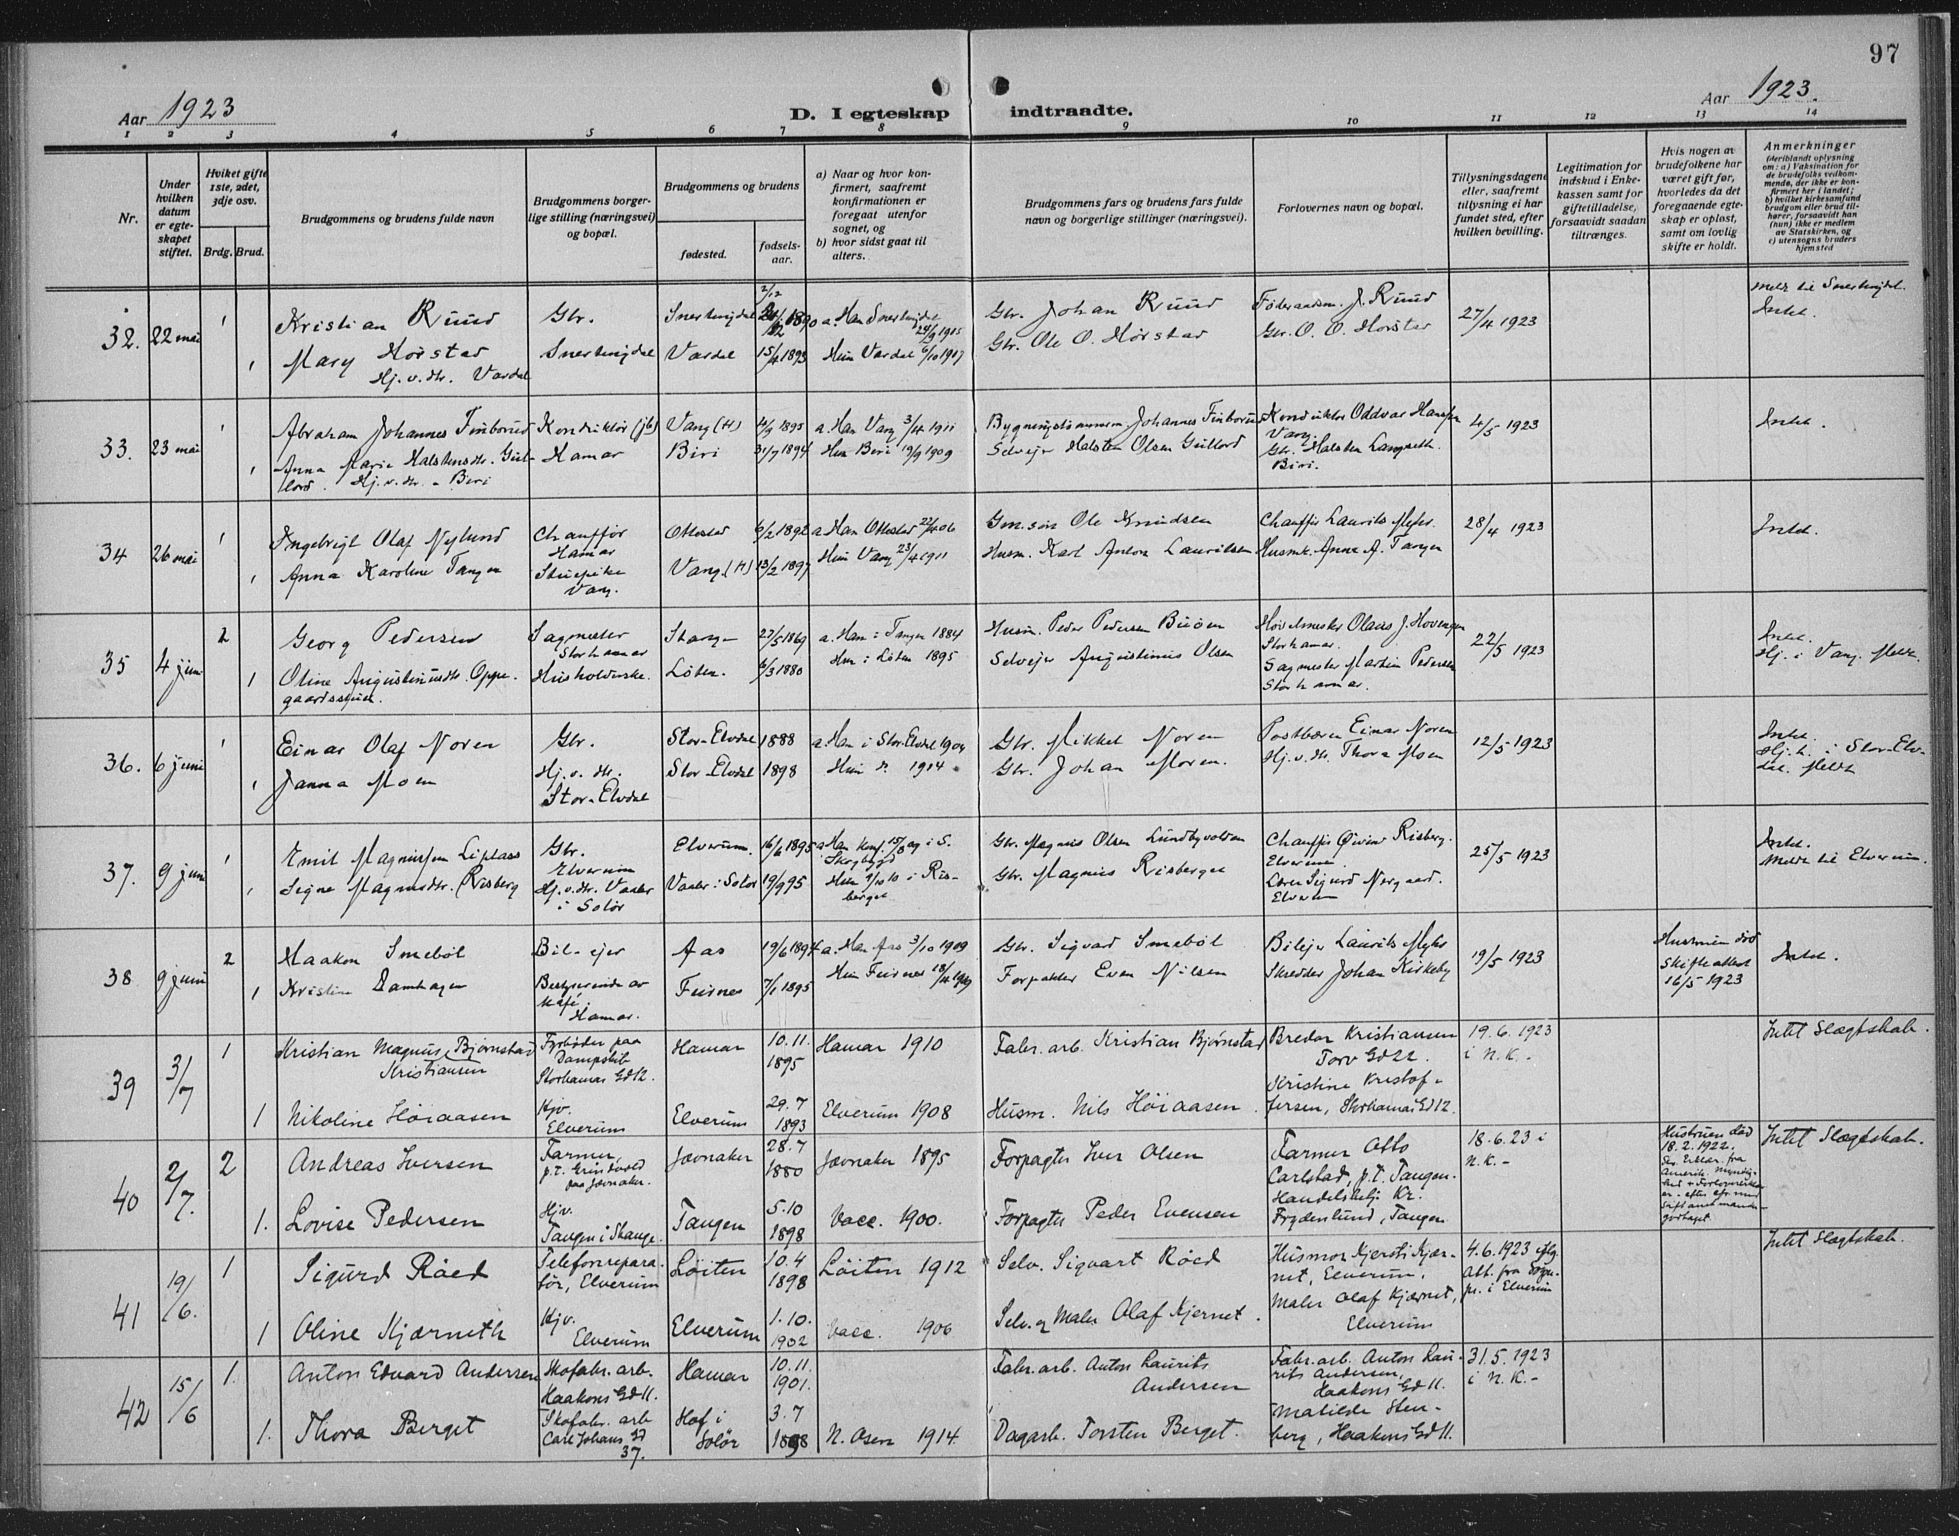 97
Aar 1923
D. I egteskap indtraadte.
Aar 1923.
1 2 3 4 5 6 7 8 9 10 11 12 13 14
Nr.
Under hvilken datum er egteskapet stiftet.
Hviket gifte 1ste, 2det, 3dje osv.
Brdg. Brud.
Brudgommens og brudens fulde navn
Brudgommens borgerlige stilling (næringsvei) og bopæl.
Brudgommens og brudens
fødested.
fødselsaar.
a) Naar og hvor konfirmert, saafremt konfirmationen er foregaat utenfor sognet, og
b) hvor sidst gaat til alters.
Brudgommens fars og brudens fars fulde navn og borgerlige stillinger (næringsvei).
Forlovernes navn og bopæl.
Tillysningsdagene eller, saafremt tillysning ei har fundet sted, efter hvilken bevilling.
Legitimation for indskud i Enkekassen samt for giftetilladelse, forsaavidt saadan tiltrænges.
Hvis nogen av brudefolkene har været gift før, hvorledes da det foregaaende egteskap er opløst, samt om lovlig skifte er holdt.
Anmerkninger
(deriblandt oplysning om: a) Vaksination for de brudefolks vedkommende, der ikke er konfirmert her i landet; b) hvilket kirkesamfund brudgom eller brud tilhører, forsaavidt han (hun) ikke er medlem av Statskirken, og c) utensogns bruders hjemsted
32. 22 mai 1 Kristian Ruud Gbr. Snertingdal 1890 a. Han Snertingdal 1905 Gbr. Johan Ruud Føderaadsm. J. Ruud 27/4 1923 Meld til Snertingdal. Intet.
1 Mary Hørstad Snertingdal Vardal 15/4 1893 Hun Vardal 6/10 1907 Gbr. Ole O. Hørstad Gbr. O. O. Hørstad
Hj. v. dtr. Vardal
33. 23 mai 1 Abraham Johannes Finborud Konduktør (jb) Vang (H) 4/9 1895 a. Han Vang 3/4 1911 Bygningssnmem Johannes Finborud Konduktør Oddvar Hansen Vang. 4/5 1923 Intet.
1 Anna Marie Halstensdtr. Gullord. Hj. v. dtr. Biri Hamar Biri 31/7 1894 Hun Biri 19/9 1909 Selveier Halsten Olsen Gullord Gbr. Halsten Langseth Biri.
34 26 mai 1 Ingebrigt Olaf Nylund Chauffør Hamar Ottestad 6/2 1892 a Han Ottestad 22/4 06 Ole Knudsen Chauffør Laurits Myhr. 28/4 1923 Intet.
1 Anna Karoline Tangen Stuepike Vang. Vang (H) 13/2 1897 Hun Vang 23/4 1911 Husm. Karl Anton Lauritsen Husmk. Anna A. Tangen
35 4 juni 2 Georg Pedersen Sagmester Storhamar Stange 27/5 1869 a. Han i Tangen 1884 Husm. Peder Pedersen Buöen Høvelmester Olaus J. Hovengen Storhamar. 22/5 1923 Intet.
1 Oline Augustinusdtr. Oppegaardsstuen. Husholderske. Løten. 6/3 1880 Hun i Løten 1895 Selvejer Augustinus Olsen Sagmester Martin Pedersen Storhamar. Hj. i Vang. Meldt
36. 6 juni 1 Einar Olaf Noren Gbr. Stor-Elvdal 1888 a Han i Stor-Elvdal 1904 Gbr. Mikkel Noren Postbærer Einar Noren 12/5 1923 Intet.
1 Janna Moen Hj. v. dtr. Stor-Elvdal Stor-Elvdal 1898 Hun d. 1914. Gbr. Johan Moren. Hj. v. dtr. Thora Moen Hj.h. i Stor-Elvdal. Meldt
37. 9 juni 1 Emil Magnussen Liplass Gbr. Elverum Elverum. 16/6 1895 a Han konf. 15/8 09 i S. Skogbygd Gbr. Magnus Olsen Lundbyvolden Chauffør Øivind Risberg. Elverum. 25/5 1923 Intet.
1 Signe Magnusdtr. Risberg Hj. v. dtr. Vaaler i Solør Vaaler i Solør 19/9 95 Hun 9/10 10 i Risberget Gbr. Magnus Risberget Sigurd Nergaard. Elverum Meldt til Elverum.
38 9 juni 2 Haakon Smebøl Bil-ejer Aas 19/6 1894 a. Han Aas 3/10 1909 Gbr. Sigvard Smebøl Bilejer Laurits Myhr 19/5 1923 Hustruen død Skifteattest 16/5 1923 Intet.
1 Kristine Damhagen Bestyrerinde av Kafé. Hamar. Feiring 7/1 1895 Hun Feiring 18/4 1909 Forpakter Even Nilsen Skredder Johan Kirkeby
39 3/7 1 Kristian Magnus Bjørnstad Kristiansen Fyrbøder paa Dampskib Storhamar Gd 12. Hamar 10.11. 1895 Hamar 1910 Fabr. arb. Kristian Bjørnstad Bredor Kristiansen Torv Gd 22. 19.6.1923 i N.K.- Intet Slægtskab.
1 Nikoline Höiaasen Hjv. Elverum Elverum 29.7 1893 Elverum 1908 Husm. Nils Höiaasen. Kristine Kristoffersen, Storhamar Gd 12.
40 2/7. 2 Andreas Iversen Farmer, p.t. Grindvold paa Jevnaker. Jævnaker 28.7 1880 Jævnaker 1895 Forpagter Iver Olsen Farmer Otto Carlstad, p.t. Tangen. 18.6.23 i N.K.- Hustruen død 18.2.1922. Intet Slægtskab.
1. Lovise Pedersen Hjv. Tangen i Stange. Tangen 5.10 1898 Vacc. 1900. Forpagter Peder Evensen Handelsbetj. Kr. Frydenlund, Tangen
41 19/6. 1 Sigurd Röed Telefonreparatør, Elverum Löiten 10.4 1898 Löiten 1912 Selv. Sigvart Röed Husmor Kjersti Kjærnet, Elverum. 4.6.1923 iflg. Att. fra Sogn.pr. i Elverum Intet Slægtskab.
1 Oline Kjærneth Hjv. Elverum Elverum 1.10. 1902 Vacc. 1906 Selv. og Maler Olaf Kjernet. Maler Olaf Kjærnet, Elverum
42 15/6 1. Anton Edvard Andersen Skofabr. arb. Haakons Gd 11. Hamar 10.11. 1901. Fabr. arb. Anton Laurits Andersen Fabr. arb. Anton Laurits Andersen, Haakons Gd 11. 31.5.1923 i N.K.-
1. Thora Berget Skofabr. arb Carl Johans Gd 37. Hof i Solør 3.7 1898 N. Osen 1914. Dagarb. Torsten Berget. Matilde Stenberg, Haakons Gd 11.